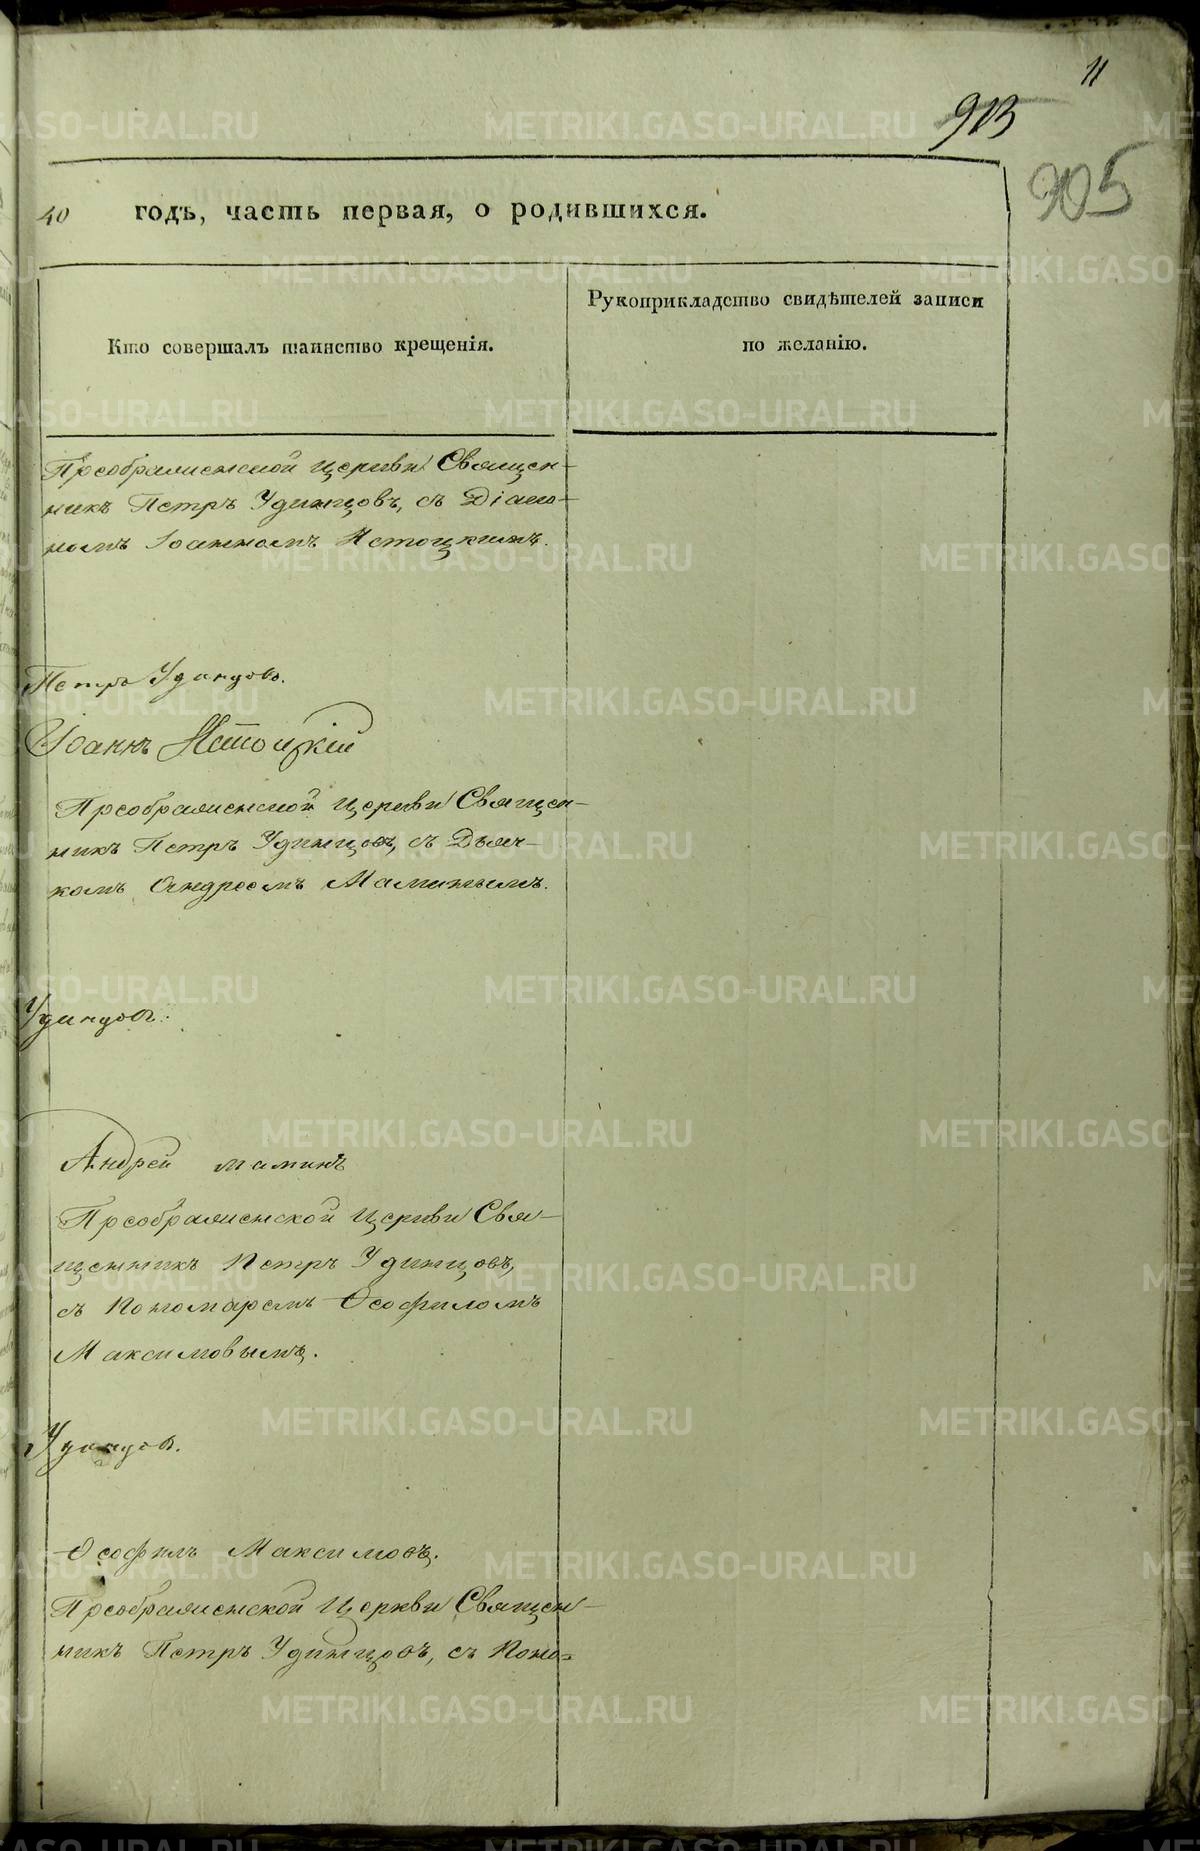 11
913
905
40 годъ, часть первая, о родившихся.
Кто совершалъ таинство крещенія.
Рукоприкладство свидѣтелей записи
по желанію.
Преображенской Церкви Священ-
никъ Петръ Удинцовъ, съ Діако-
номъ Іоанномъ Истоцкимъ.
Петръ Удинцовъ.
Іоаннъ Истоцкій
Преображенской Церкви Священ-
никъ Петръ Удинцовъ, съ Дьяч-
комъ Андреемъ Маминымъ.
Удинцовъ.
Андрей Маминъ
Преображенской Церкви Свя-
щенникъ Петръ Удинцовъ,
съ Пономаремъ Ѳеофиломъ
Максимовымъ.
Удинцов.
Ѳеофилъ Максимовъ.
Преображенской Церкви Священ-
никъ Петръ Удинцовъ, съ Поно=
METRIKI.GASO-URAL.RU